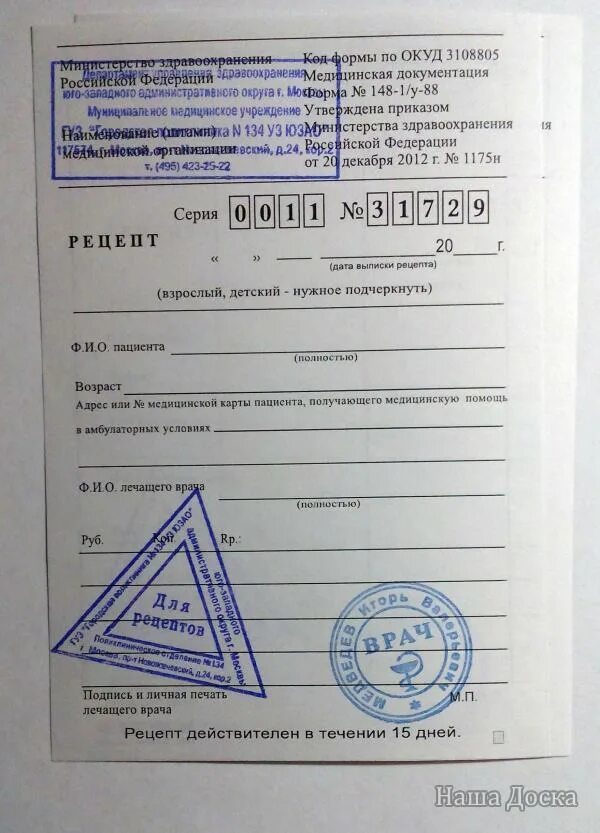 Министерство здравоохранения
Российской Федерации
Наименование (штамп)
медицинской организации
Департамент управления здравоохранения
юго-западного административного округа г. Москвы
Муниципальное медицинское учреждение
ГУЗ "Городская поликлиника N 134 УЗ ЮЗАО
г. Москва, д.24, кор.2
т. (495) 423-25-22
Код формы по ОКУД 3108805
Медицинская документация
Форма № 148-1/у-88
Утверждена приказом
Министерства здравоохранения
Российской Федерации
от 20 декабря 2012 г. № 1175н
Серия 0011 № 31729
РЕЦЕПТ
« » 20 г.
(дата выписки рецепта)
(взрослый, детский - нужное подчеркнуть)
Ф.И.О. пациента
(полностью)
Возраст
Адрес или № медицинской карты пациента, получающего медицинскую помощь
в амбулаторных условиях
Ф.И.О. лечащего врача
(полностью)
Руб. Коп. Rp.:
ГУЗ "Городская поликлиника № 134 УЗ ЮЗАО"
юго-западного
административного округа г. Москвы
Для
рецептов
Поликлиническое отделение № 134
г. Москва, пр-т Новоясеневский, д.24, кор.2
МЕДВЕДЕВ Игорь Валерьевич
ВРАЧ
Подпись и личная печать
лечащего врача
М.П.
Рецепт действителен в течении 15 дней.
Наша Доска